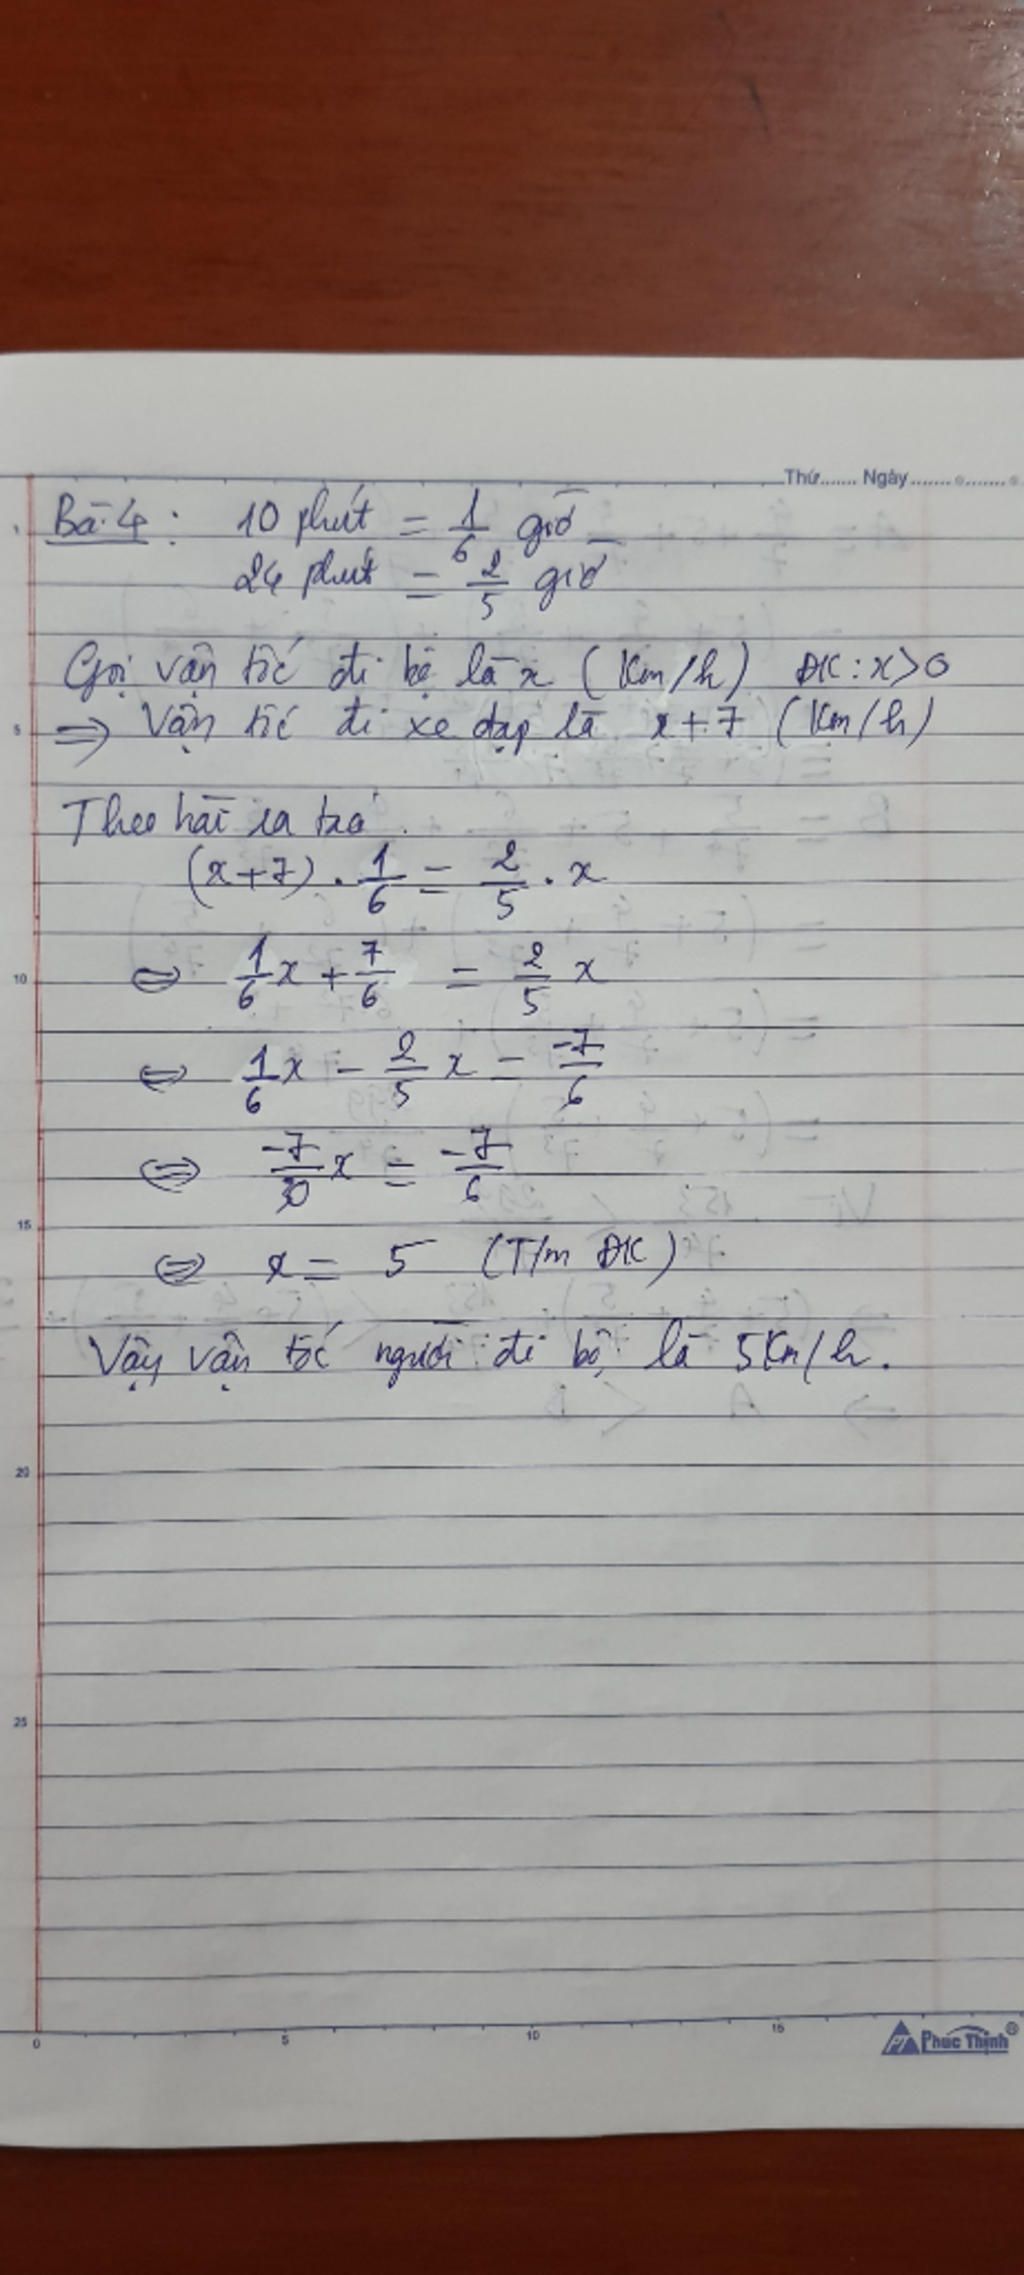 Thứ....... Ngày..............
Bài 4: 10 phút = 1/6 giờ
24 phút = 2/5 giờ
Gọi vận tốc đi bộ là x (Km/h) ĐK: x>0
=> Vận tốc đi xe đạp là x+7 (Km/h)
Theo bài ra ta có
(x+7) . 1/6 = 2/5 . x
⇔ 1/6 x + 7/6 = 2/5 x
⇔ 1/6 x - 2/5 x = -7/6
⇔ -7/30 x = -7/6
⇔ x = 5 (T/m ĐK)
Vậy vận tốc người đi bộ là 5Km/h.
1
5
10
15
20
25
0 5 10 15
Phúc Thịnh®